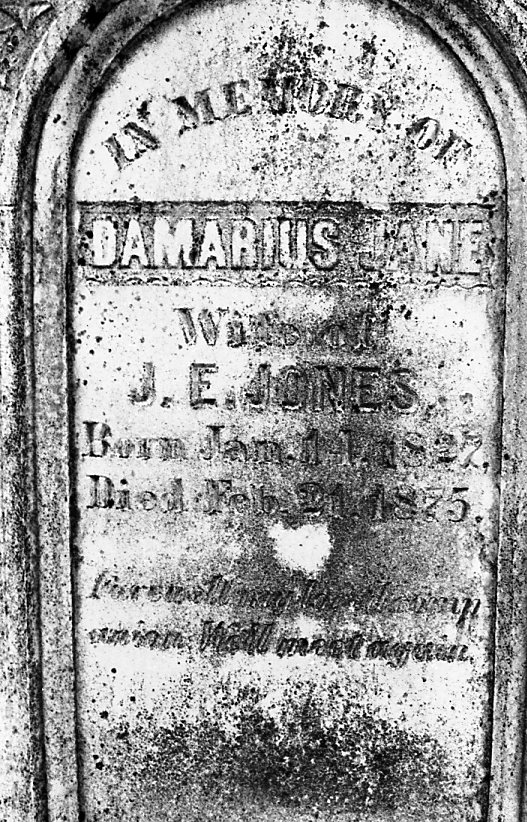 IN MEMORY OF
DAMARIUS JANE
Wife of
J. E. JONES.
Born Jan. 11, 1827.
Died Feb. 21, 1875.
Farewell my comp
anion. We'll meet again.